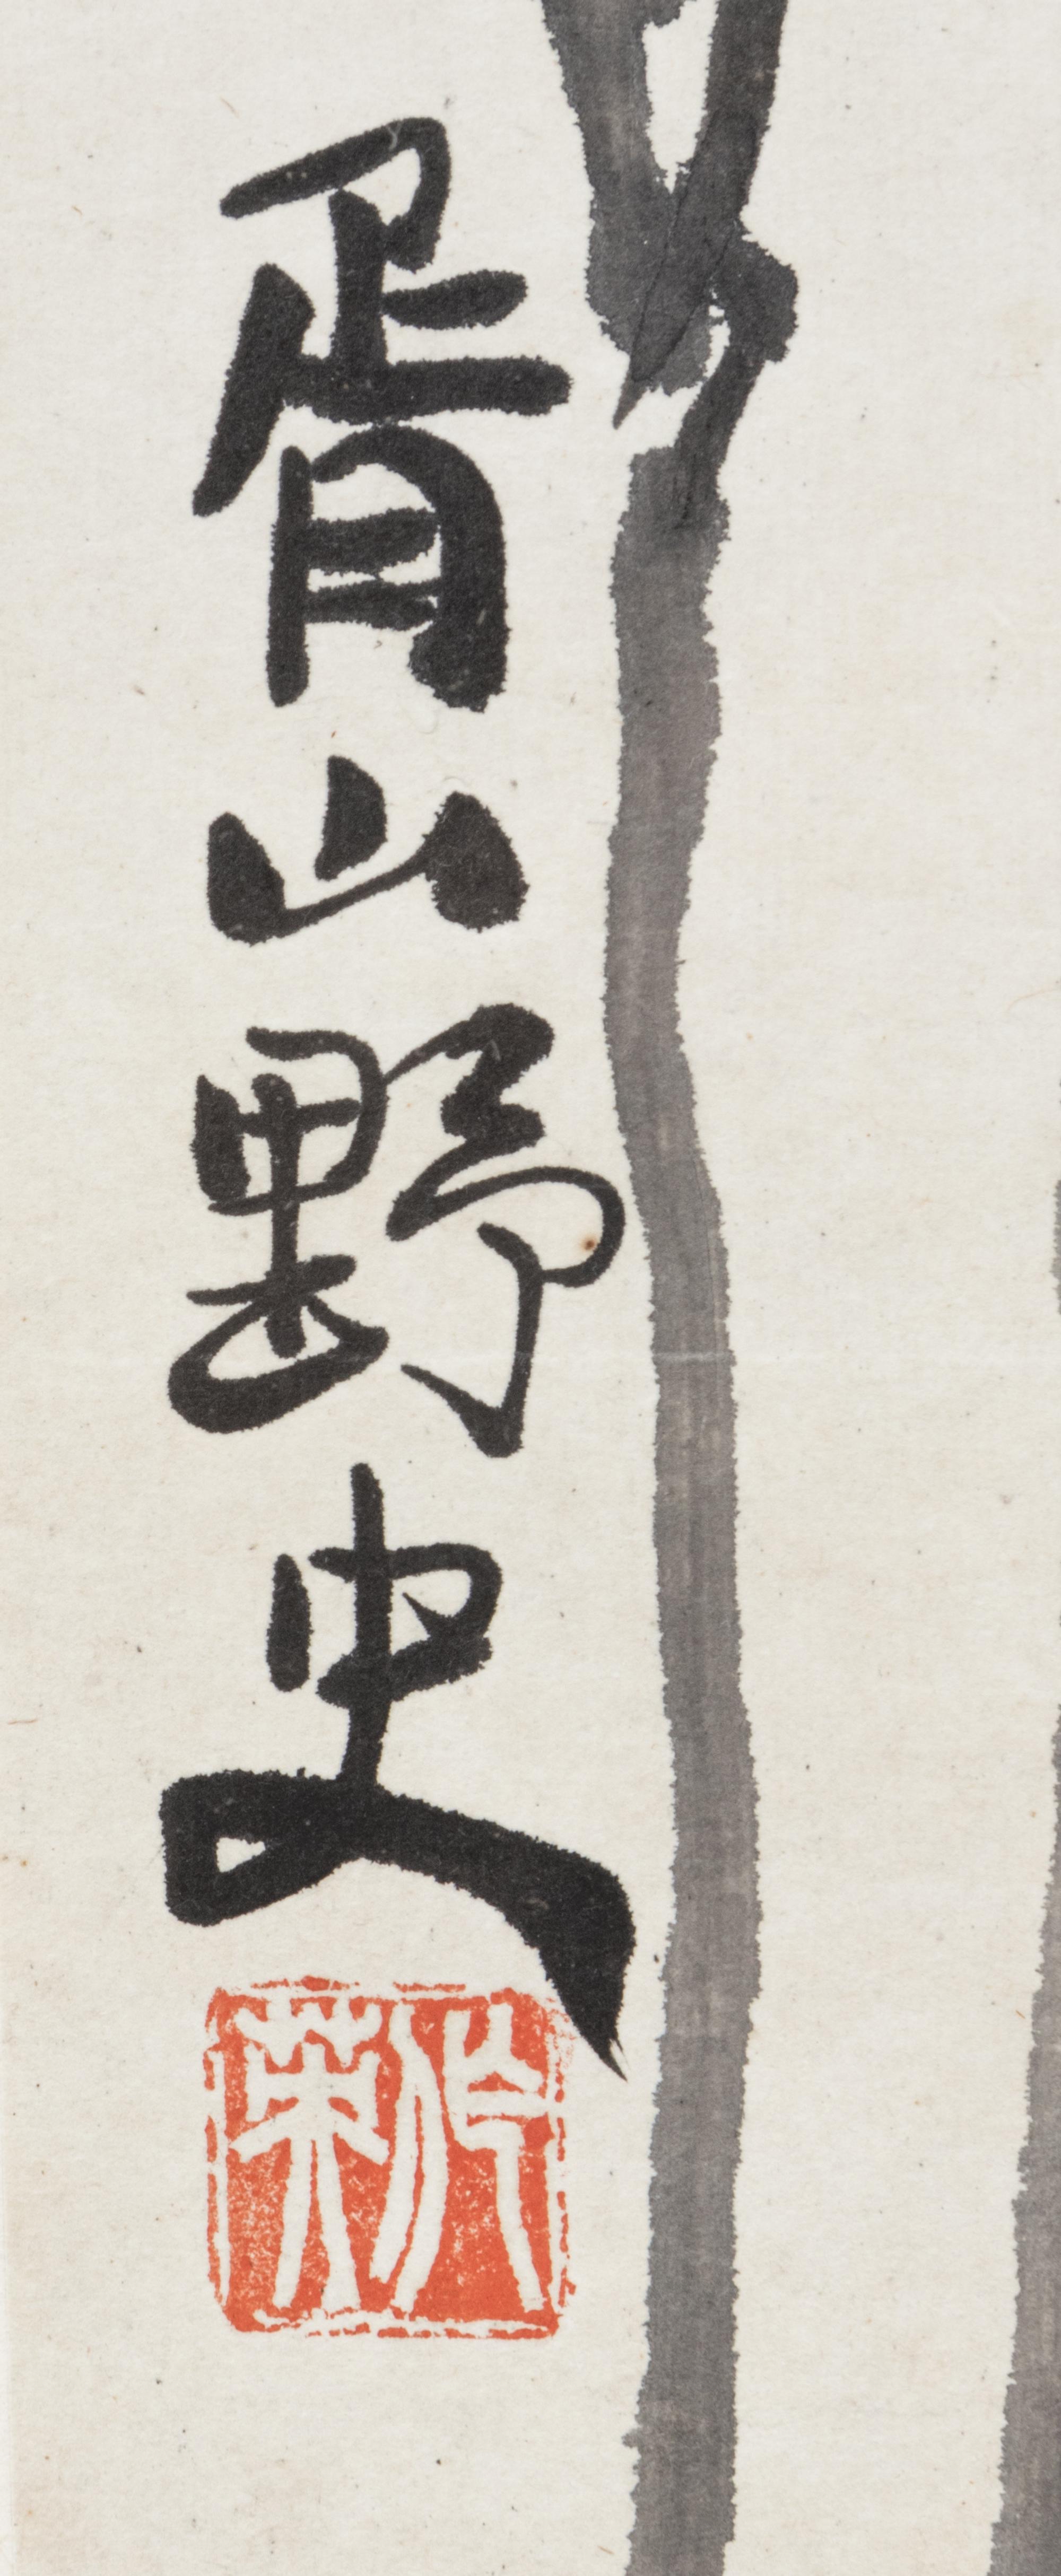 胥山野史